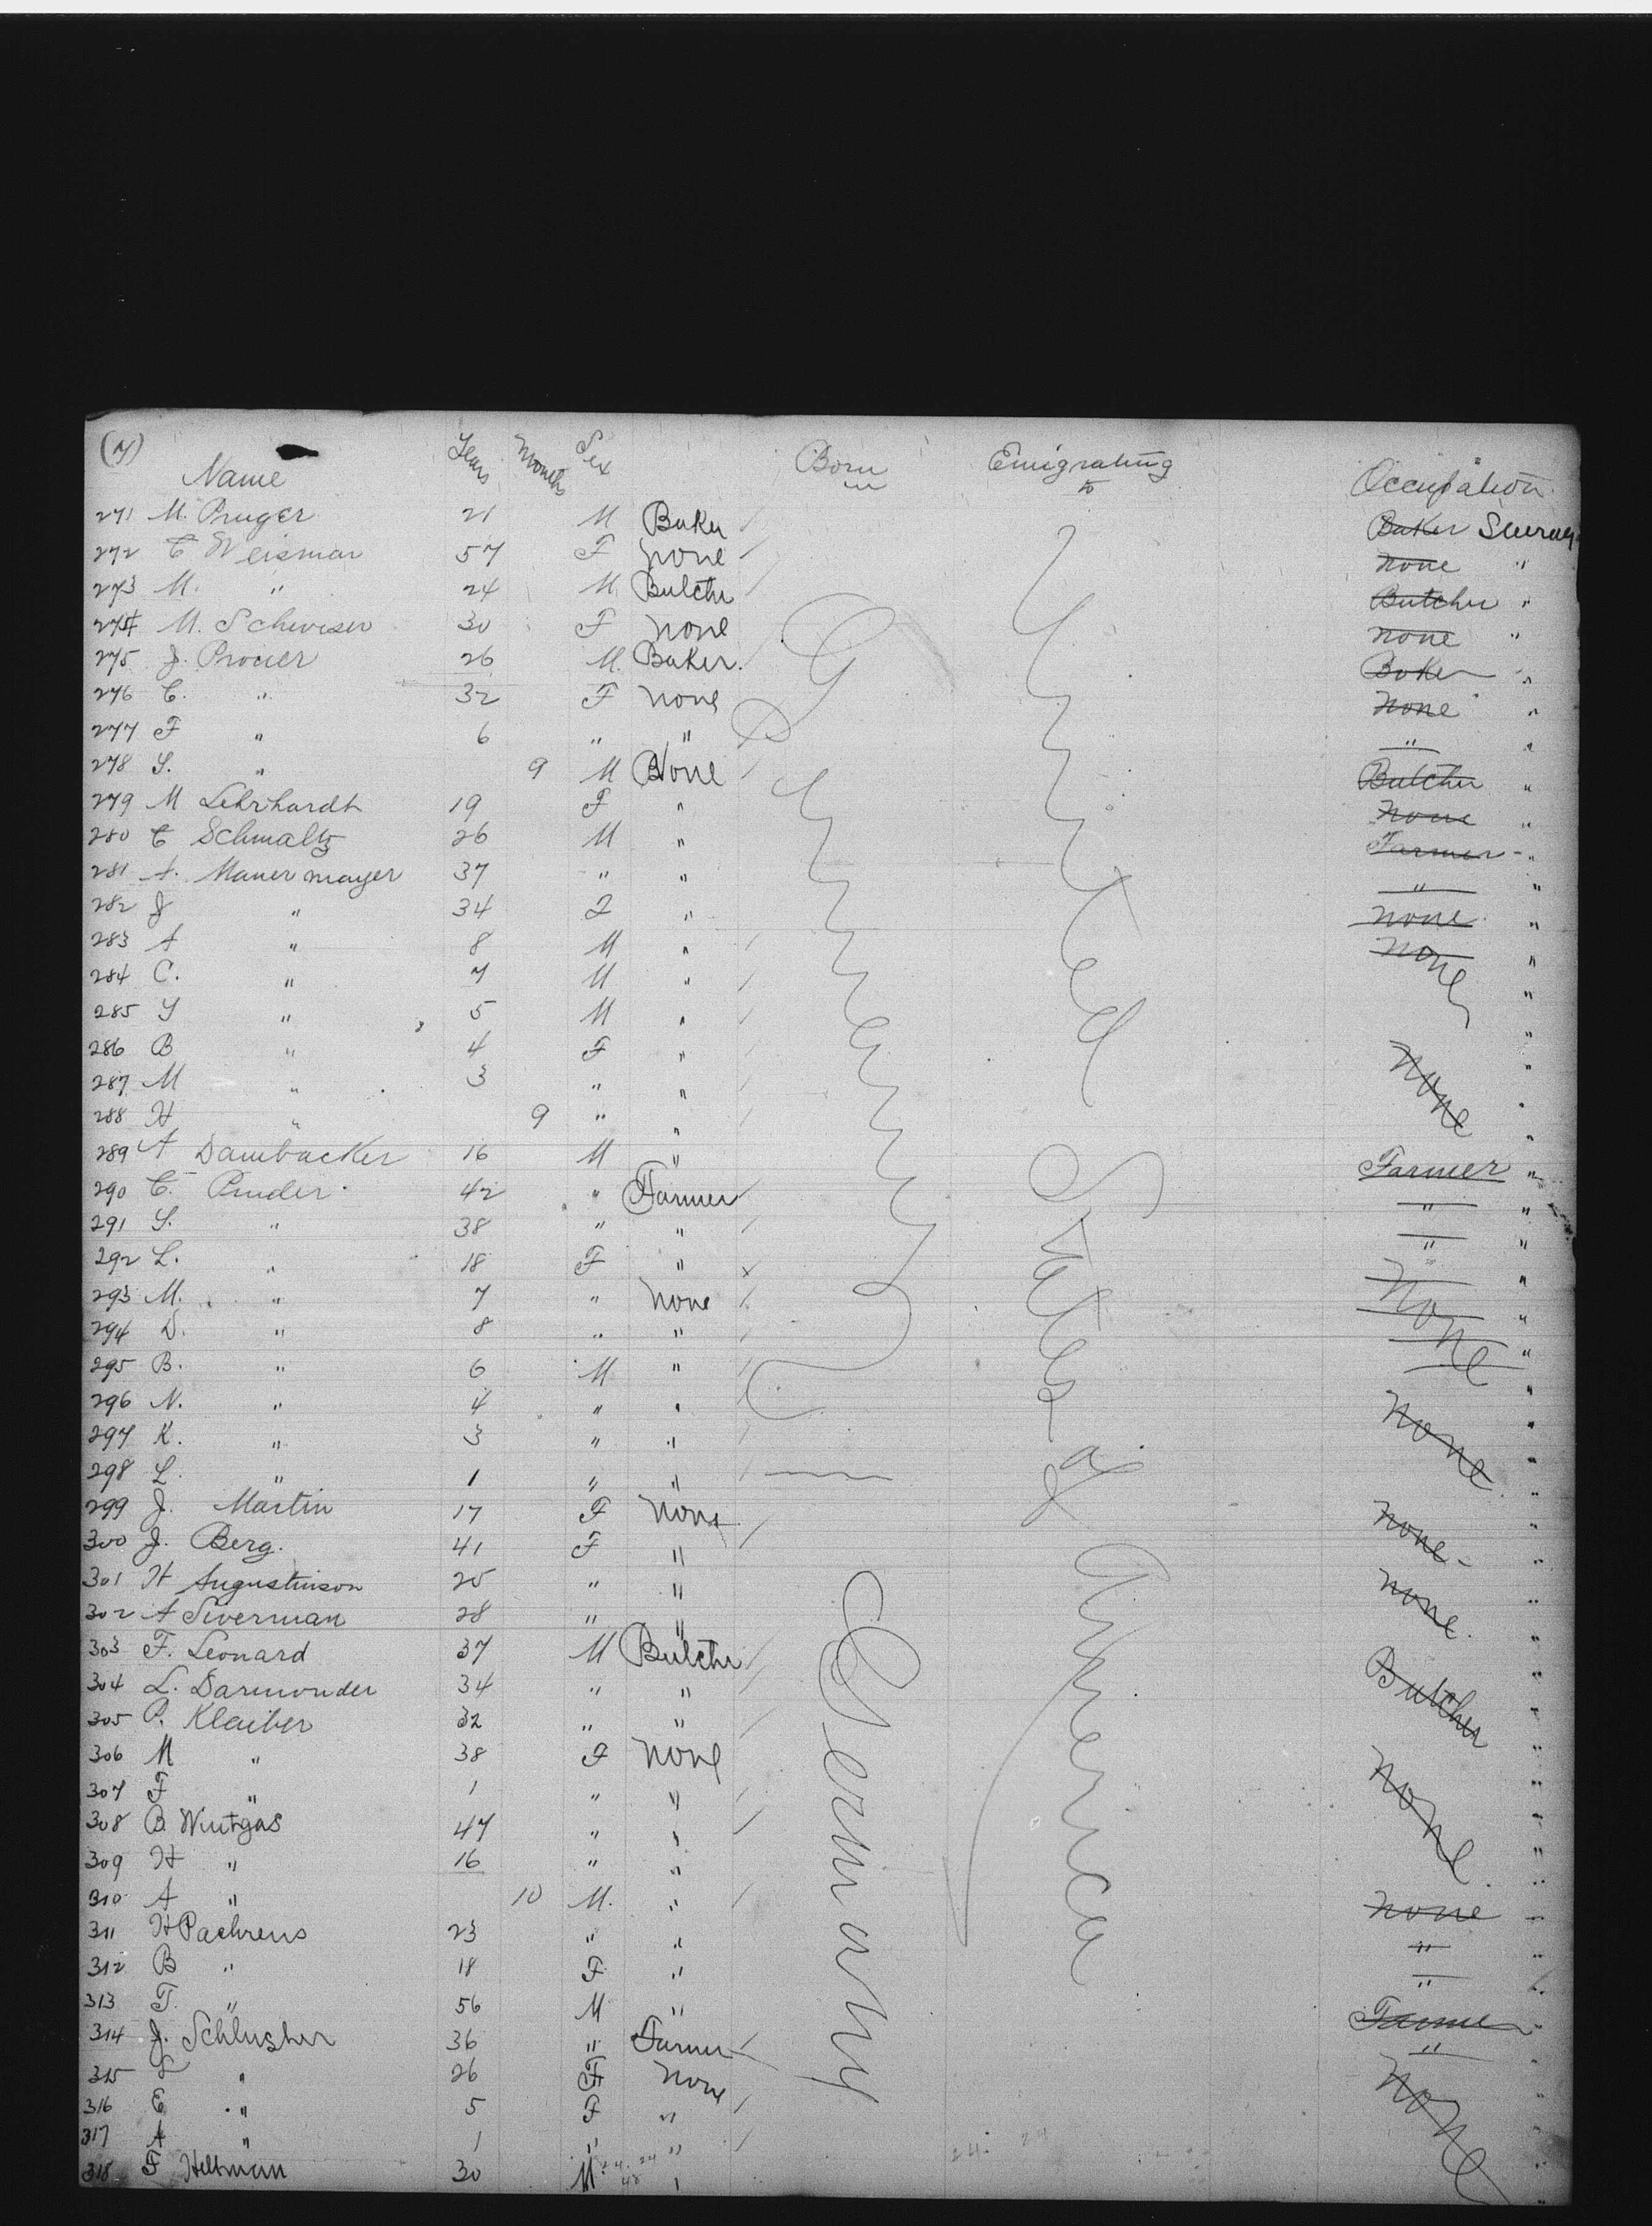 (7)
Name Years Months Sex Born in Emigrating to Occupation
271 M. Pruger 21 M Baker Baker
272 C Weismar 57 F none none "
273 M. " 24 M Butcher Butcher "
274 M. Schweiser 30 F none none "
275 J. Prouer 26 M. Baker. Baker "
276 C. " 32 F none none "
277 F " 6 " " " "
278 S. " 9 M None Butcher "
279 M Lehrhardt 19 F " none "
280 C Schmaltz 26 M " Farmer "
281 A. Manermayer 37 " " " "
282 J " 34 F " none "
283 A " 8 M " none "
284 C. " 7 M " "
285 S " 5 M " "
286 B " 4 F " none "
287 M " 3 " " "
288 H " 9 " " "
289 A Dambacker 16 M " Farmer "
290 C. Pruder 42 " Farmer " "
291 S. " 38 " " " "
292 L. " 18 F " " "
293 M. " 7 " none None "
294 D. " 8 " " "
295 B. " 6 M " "
296 N. " 4 " " none "
297 K. " 3 " " "
298 L. " 1 " " "
299 J. Martin 17 F none none "
300 J. Berg. 41 F " "
301 H Augustinson 25 " " none "
302 A Siverman 28 " " "
303 F. Leonard 37 M Butcher Butcher "
304 L. Darmonder 34 " " "
305 P. Klaiber 32 " " "
306 M " 38 F none none "
307 F " 1 " " "
308 B. Wintgas 47 " " "
309 H " 16 " " "
310 A " 10 M. " none "
311 H Paehrens 23 " " " "
312 B " 18 F " " "
313 T. " 56 M " Farmer "
314 J. Schlusher 36 " Farmer " "
315 L " 26 F none none "
316 E " 5 F " "
317 A " 1 " " "
318 F Hellman 30 M. " "
Germany
United States of America
Germany